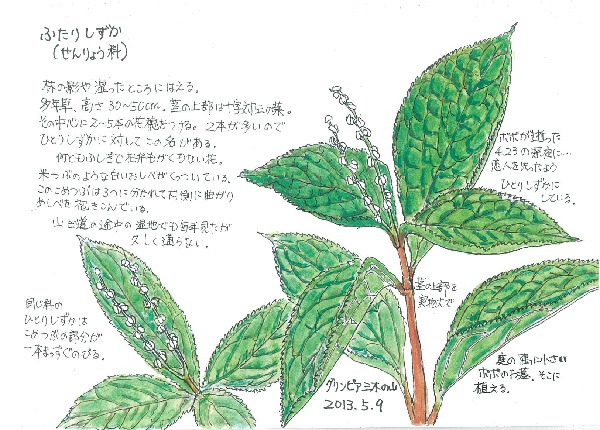 ふたりしずか
(せんりょう科)
林の影や湿ったところにはえる。
多年草。高さ30~50cm。茎の上部は十字対生の葉。
その中心に2~5本の花穂をつける。2本が多いので
ひとりしずかに対してこの名がある。
何ともふしぎで花弁もがくもない花。
米つぶのような白いおしべがくっついている。
このこめつぶは3つに分かれて内側に曲がり
めしべを抱きこんでいる。
山の道の途中の湿地でも毎年見たが
久しく通らない。
ポポが逝った
4.23の深夜に…
恋人を失ったよう
ひとりしずかに
している。
茎の上部を
実物大で
同じ科の
ひとりしずかは
こめつぶの部分が
一本まっすぐのびる。
グリンピア三木の山
2013.5.9
庭の空いに小さい
ポポのお墓。そこに
植える。